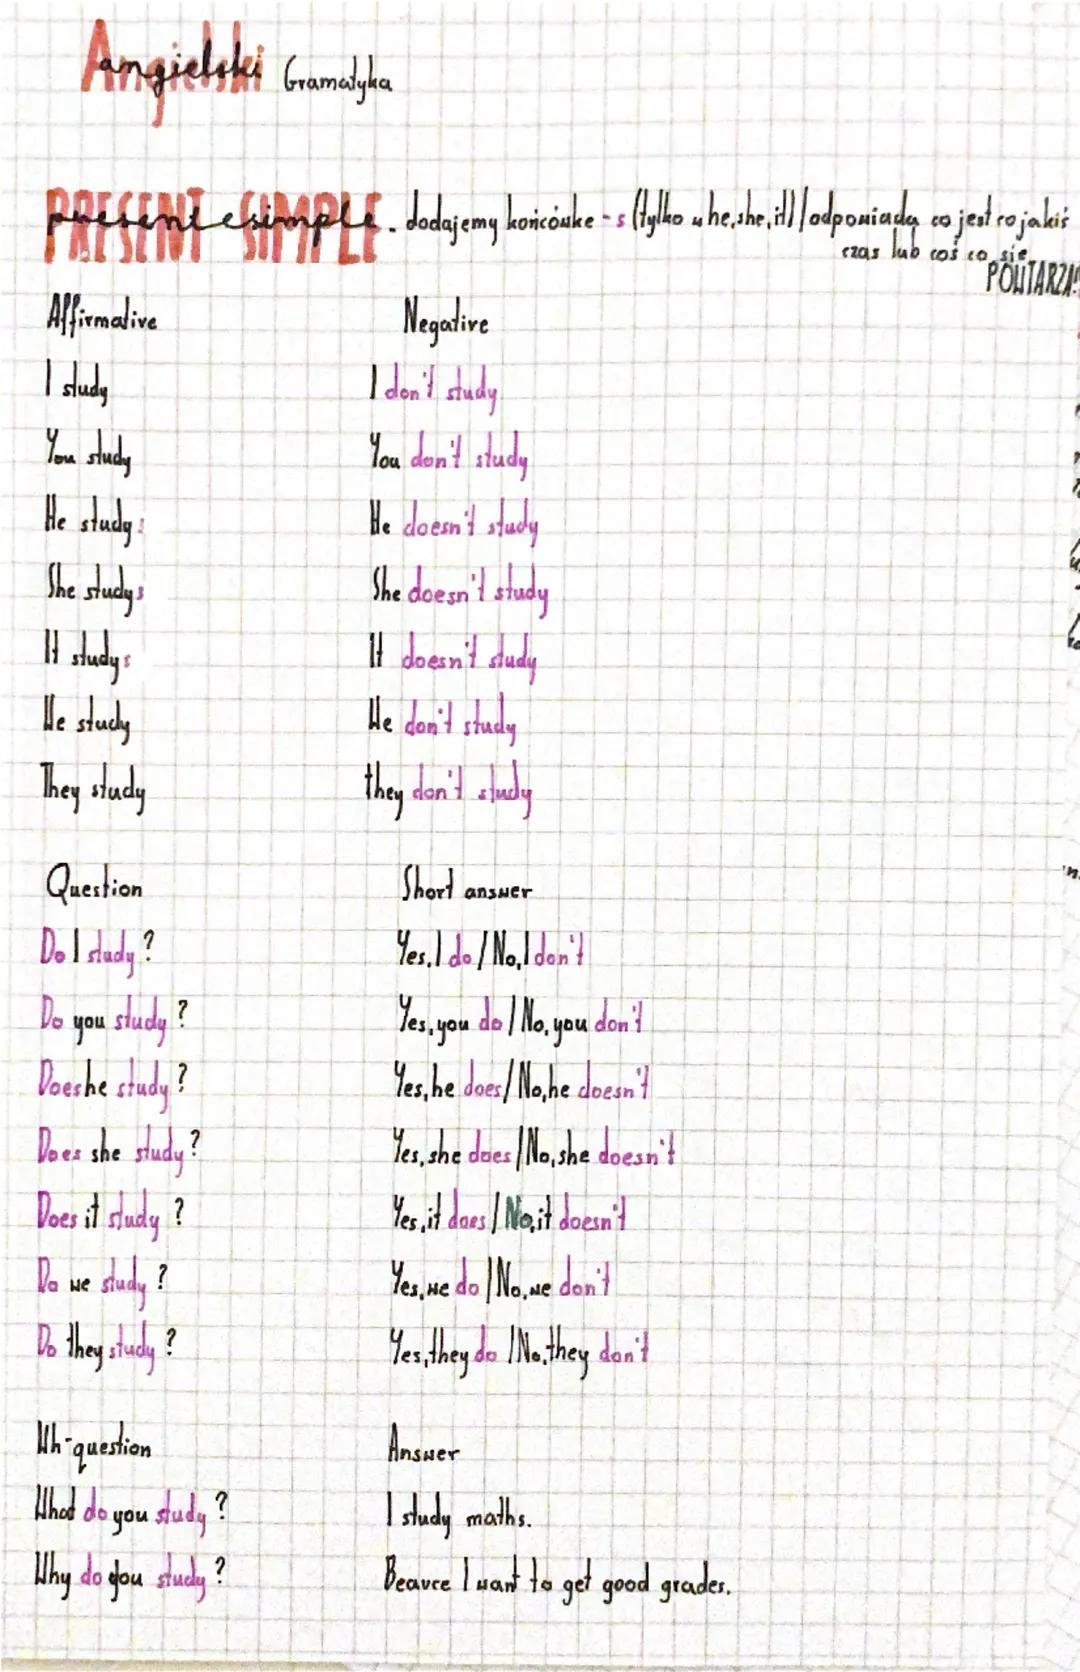 Angielski Gramatyka
PRESENT SIMPLE present simple - dodajemy końcówke -s (tylko u he, she, it) / odpowiada co jest co jakiś
czas lub coś co się
POWTARZA!
Affirmative Negative
I study I don't study
You study You don't study
He studys He doesn't study
She studys She doesn't study
It studys It doesn't study
We study We don't study
They study they don't study
Question Short answer
Do I study? Yes, I do / No, I don't
Do you study? Yes, you do / No, you don't
Does he study? Yes, he does / No, he doesn't
Does she study? Yes, she does / No, she doesn't
Does it study? Yes, it does / No, it doesn't
Do we study? Yes, we do / No, we don't
Do they study? Yes, they do / No, they don't
Wh-question Answer
What do you study? I study maths.
Why do you study? Beavce I want to get good grades.